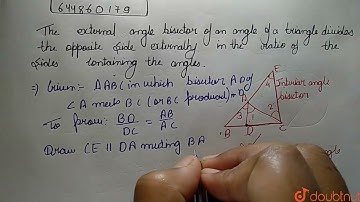 644860179
The external angle bisector of an angle of a triangle divides
the opposite side externally in the ratio of the
sides containing the angles.
⇒ Given:- ΔABC in which bisector AD of
CA meets BC (or BC produced) = D
To prove: BD/DC = AB/AC
Draw CE || DA meeting BA
E
4
A
3 1 2
B D C
Interior angle
bisector
doubtnut